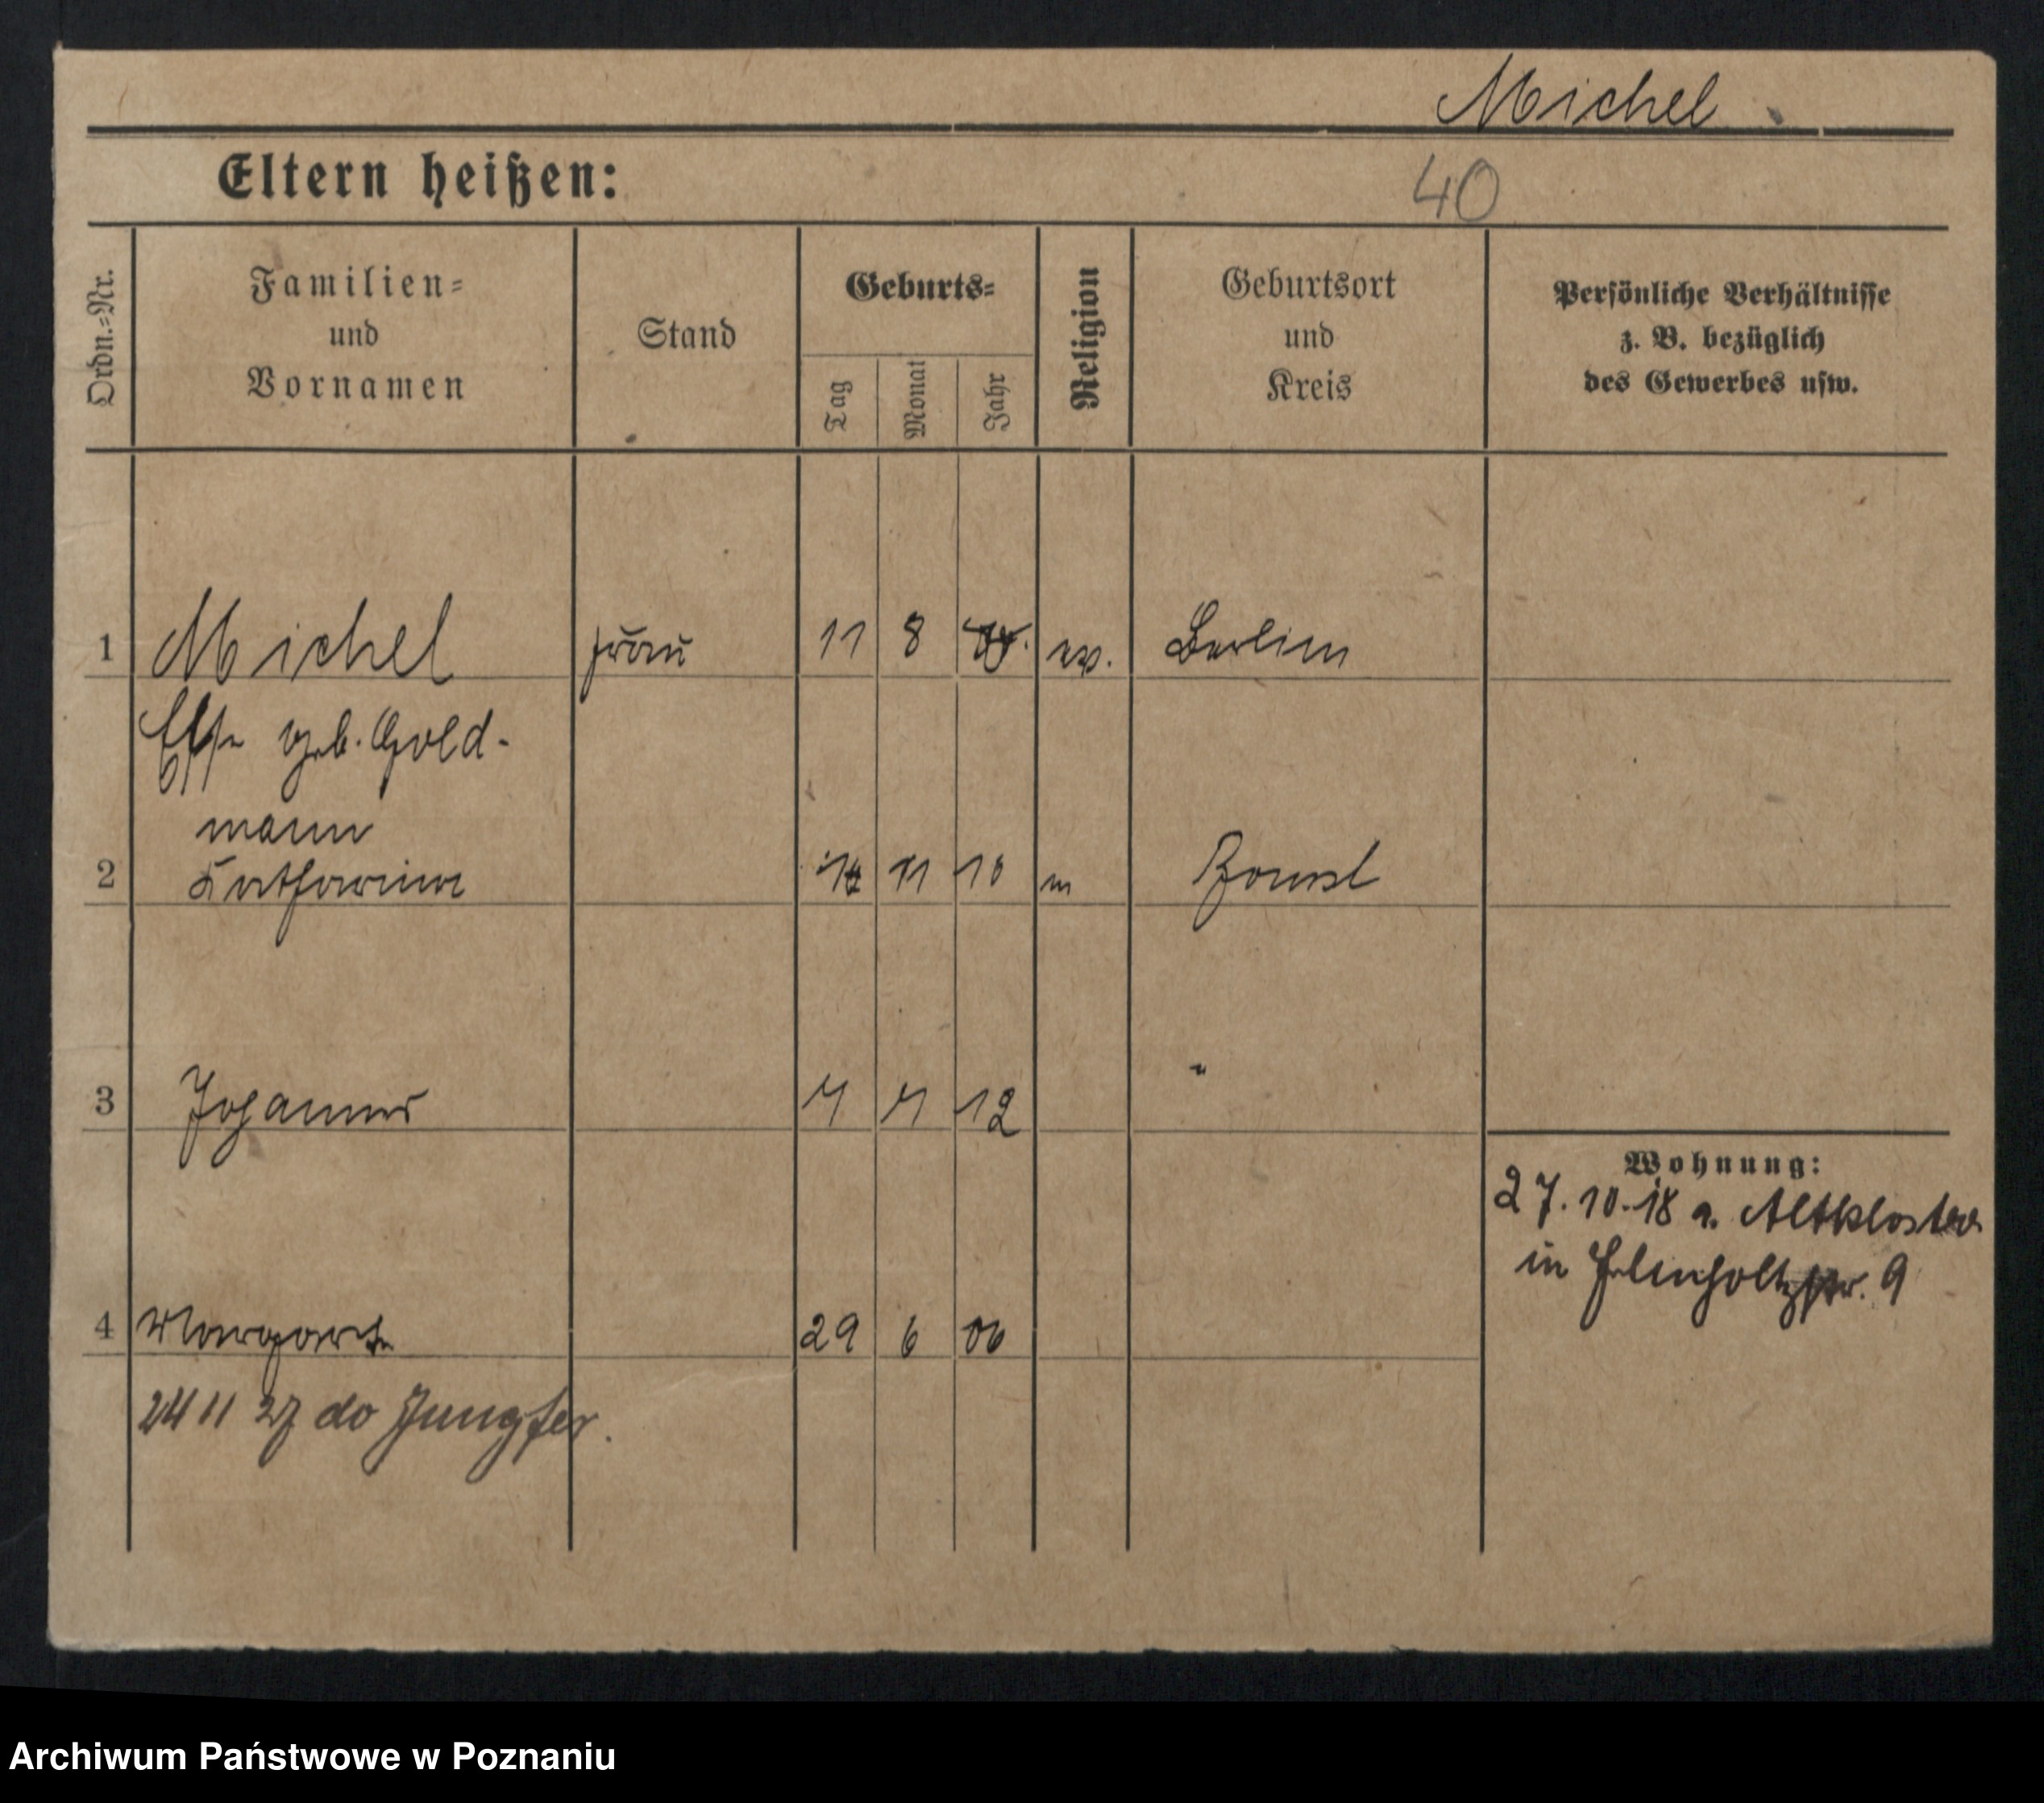 Michel
Eltern heißen:
40
Ordn.=Nr.
Familien=
und
Vornamen
Stand
Geburts=
Tag
Monat
Jahr
Religion
Geburtsort
und
Kreis
Persönliche Verhältnisse
z. B. bezüglich
des Gewerbes usw.
1 Michel Frau 11 8 ev. Berlin
Else geb. Gold-
mann
2 Katharina 11 10 Bomst
3 Johannes 12 "
Wohnung:
27.10.18 a. Altkloster
in Helmholtzstr. 9
4 Margarete 29 6 06
24 11 27 do Jungfer.
Archiwum Państwowe w Poznaniu